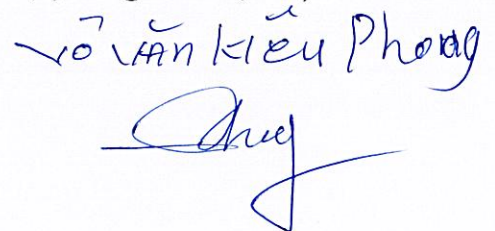 Võ Văn Kiều Phong